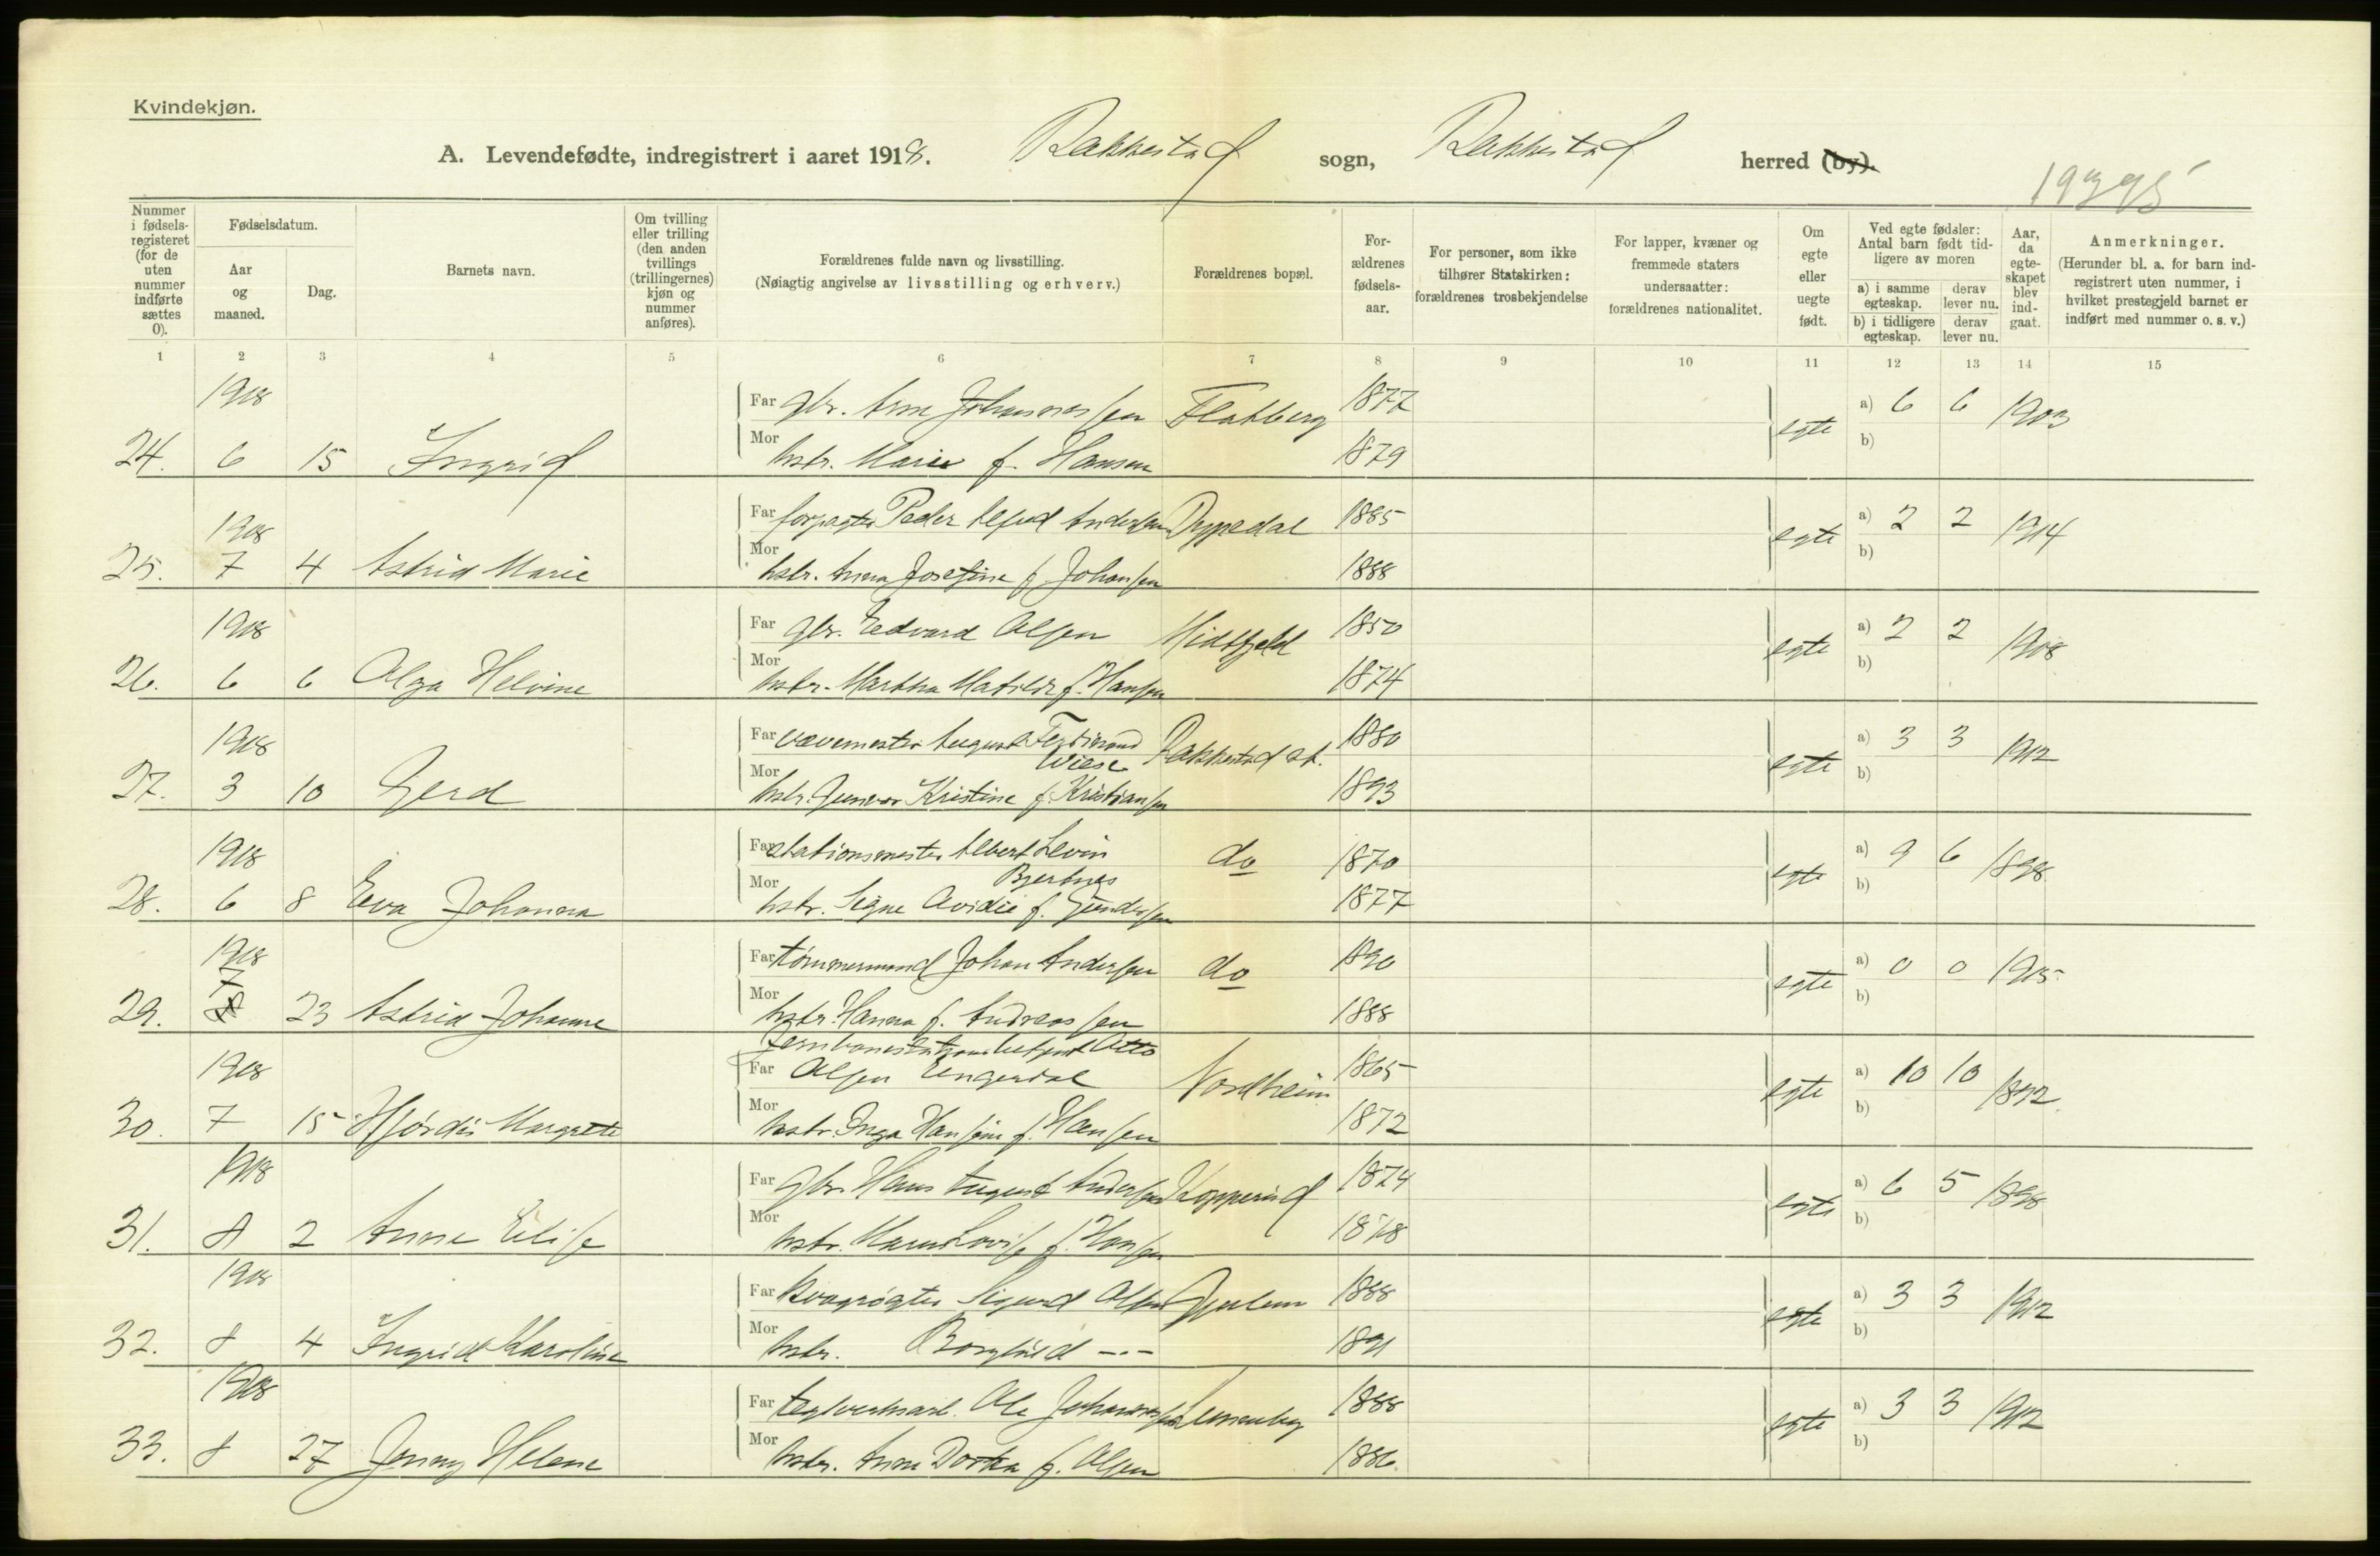 Kvindekjøn.
A. Levendefødte, indregistrert i aaret 1918. Rakkestad sogn, Rakkestad herred (by).
19395
Nummer i fødselsregisteret (for de uten nummer indførte sættes 0).
Fødselsdatum.
Aar og maaned.
Dag.
Barnets navn.
Om tvilling eller trilling (den anden tvillings (trillingernes) kjøn og nummer anføres).
Forældrenes fulde navn og livsstilling.
(Nøiagtig angivelse av livsstilling og erhverv.)
Forældrenes bopæl.
Forældrenes fødselsaar.
For personer, som ikke tilhører Statskirken: forældrenes trosbekjendelse
For lapper, kvæner og fremmede staters undersaatter: forældrenes nationalitet.
Om egte eller uegte født.
Ved egte fødsler: Antal barn født tidligere av moren
a) i samme egteskap. derav lever nu.
b) i tidligere egteskap. derav lever nu.
Aar, da egteskapet blev indgaat.
Anmerkninger.
(Herunder bl. a. for barn indregistrert uten nummer, i hvilket prestegjeld barnet er indført med nummer o. s. v.)
1 2 3 4 5 6 7 8 9 10 11 12 13 14 15
1918 Far gbr. Arne Johannessen Flatberg 1877 egte a) 6 6 1903
24. 6 15 Ingrid Mor hstr. Marie f. Hansen 1879 b)
1918 Far forpagter Peder Alfred Andersen Dyppedal 1885 egte a) 2 2 1914
25. 7 4 Astrid Marie Mor hstr. Anna Josefine f. Johansen 1888 b)
1918 Far gbr. Edvard Olsen Midtfjeld 1850 egte a) 2 2 1908
26. 6 6 Olga Helvine Mor hstr. Martha Matilde f. Hansen 1874 b)
1918 Far vævemester August Ferdinand Wiese Rakkestad st. 1880 egte a) 3 3 1912
27. 3 10 Gerd Mor hstr. Gunvor Kristine f. Kristiansen 1893 b)
1918 Far stationsmester Albert Levin Bjertnes do 1870 egte a) 9 6 1898
28. 6 8 Eva Johanna Mor hstr. Signe Ovidie f. Gundersen 1877 b)
1918 Far tømmermand Johan Andersen do 1890 egte a) 0 0 1915
29. 7 23 Astrid Johanne Mor hstr. Hanna f. Andreassen 1888 b)
1918 Far Otto Olsen Engerdal Nordheim 1865 egte a) 10 10 1892
30. 7 15 Hjørdis Margrethe Mor hstr. Inga Hansine f. Hansen 1872 b)
1918 Far gbr. Hans August Andersen Kopperud 1874 egte a) 6 5 1898
31. 8 2 Anne Elise Mor hstr. Maren Lovise f. Hansen 1878 b)
1918 Far Kvægrøgter Sigurd Olsen Gjulem 1888 egte a) 3 3 1912
32. 8 4 Ingrid Karoline Mor hstr. Borghild -..- 1891 b)
1918 Far teglverksarb. Ole Johannessen 1888 egte a) 3 3 1912
33. 8 27 Jenny Helene Mor hstr. Anne Dortea f. Olsen 1886. b)